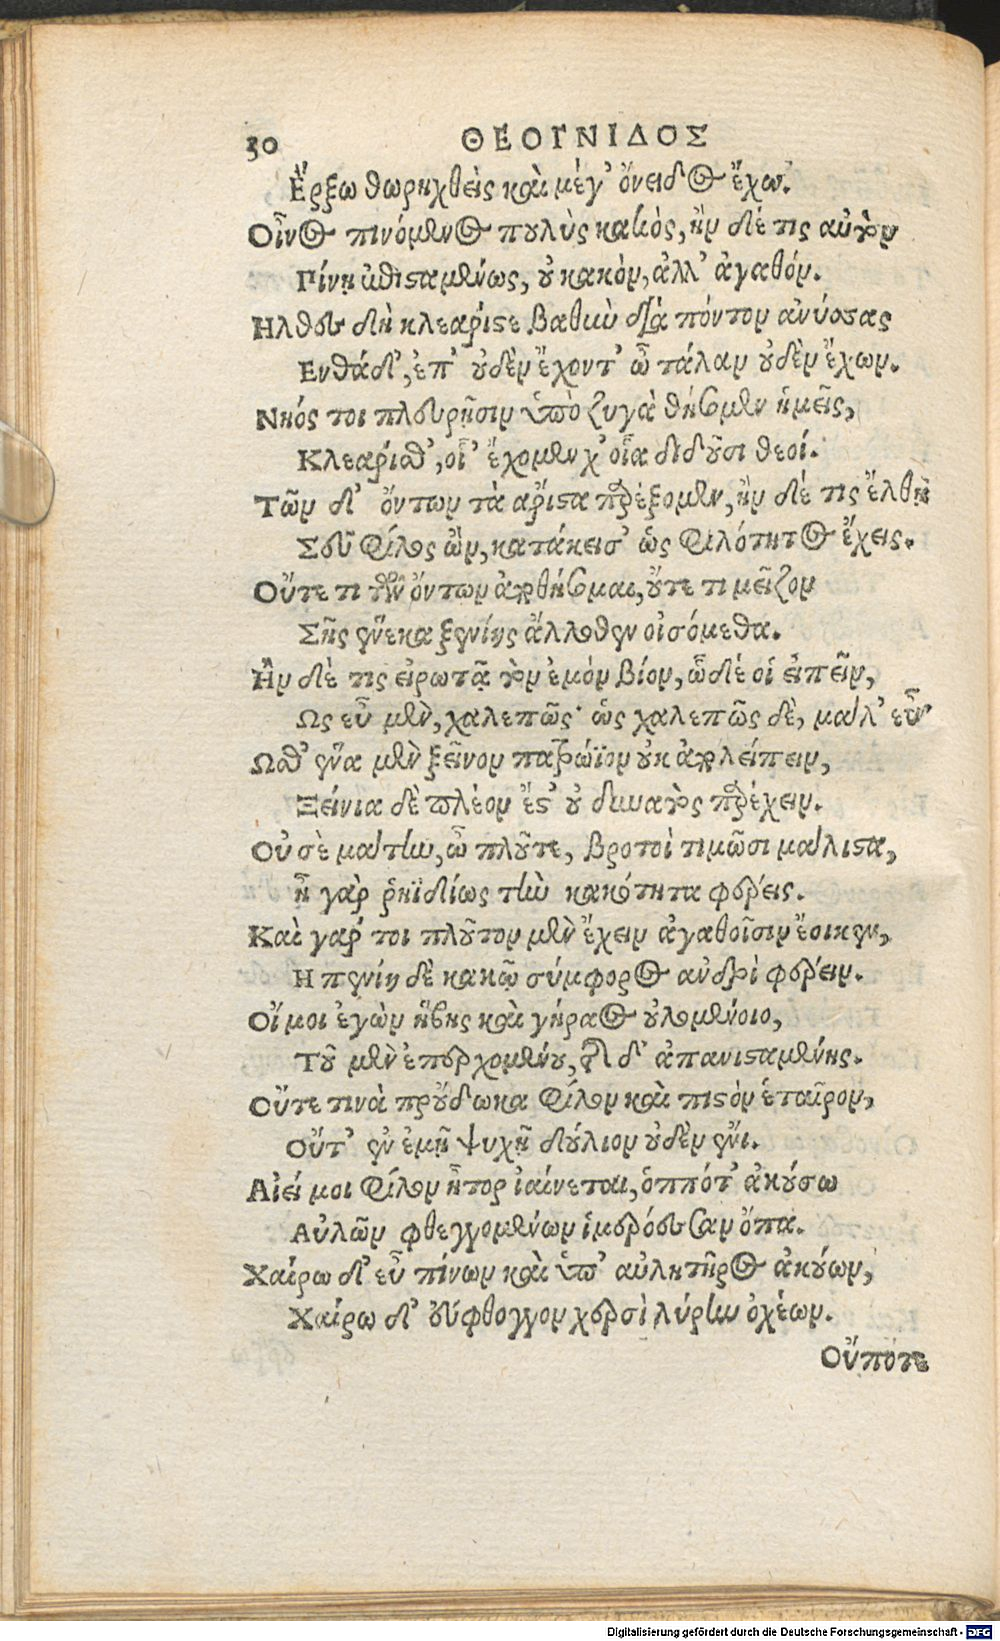 30 ΘΕΟΓΝΙΔΟΣ
Ἔρξω θωρηχθεὶς καὶ μέγ' ὄνειδος ἔχω.
Οἶνος πινόμενος πουλὺς κακὸς, ἢν δέ τις αὐτὸν
Πίνῃ ἐπισταμένως, οὐ κακὸν, ἀλλ' ἀγαθόν.
Ηλθες δὴ κλεάριστε βαθὺν διὰ πόντον ἀνύσσας
Ενθάδ', ἐπ' οὐδὲν ἔχοντ' ὦ τάλαν οὐδὲν ἔχων.
Νηός τοι πλευρῇσιν ὑπὸ ζυγὰ θήσομεν ἡμεῖς,
Κλεάρισθ', οἷ' ἔχομεν χ' οἷα διδοῦσι θεοί.
Τῶν δ' ὄντων τὰ ἄριστα παρέξομεν, ἢν δέ τις ἔλθῃ
Σεῦ φίλος ὢν, κατάκεισ' ὡς φιλότητος ἔχεις.
Οὔτε τι τῶν ὄντων ἀποθήσομαι, οὔτε τι μεῖζον
Σῆς ἕνεκα ξενίης ἄλλοθεν οἰσόμεθα.
Ἢν δέ τις εἰρωτᾷ τὸν ἐμὸν βίον, ὧδέ οἱ εἰπεῖν,
Ως εὖ μὲν, χαλεπῶς· ὡς χαλεπῶς δὲ, μάλ' εὖ
Ωσθ' ἕνα μὲν ξεῖνον πατρώϊον οὐκ ἀπολείπειν,
Ξείνια δὲ πλέον ἔστ' οὐ δυνατὸς παρέχειν.
Οὔ σὲ μάτην, ὦ πλοῦτε, βροτοὶ τιμῶσι μάλιστα,
ἦ γὰρ ῥηϊδίως τὴν κακότητα φέρεις.
Καὶ γάρ τοι πλοῦτον μὲν ἔχειν ἀγαθοῖσιν ἔοικεν,
Η πενίη δὲ κακῷ σύμφορος ἀνδρὶ φέρειν.
Οἴ μοι ἐγὼν ἥβης καὶ γήραος οὐλομένοιο,
Τοῦ μὲν ἐπερχομένου, τῆς δ' ἀπανισταμένης.
Οὔτε τινὰ προύδωκα φίλον καὶ πιστὸν ἑταῖρον,
Οὔτ' ἐν ἐμῇ ψυχῇ δούλιον οὐδὲν ἔνι.
Αἰεί μοι φίλον ἦτορ ἰαίνεται, ὁππότ' ἀκούσω
Αὐλῶν φθεγγομένων ἱμερόεσσαν ὄπα.
Χαίρω δ' εὖ πίνων καὶ ὑπ' αὐλητῆρος ἀκούων,
Χαίρω δ' εὔφθογγον χερσὶ λύρην ὀχέων.
Οὔποτε
Digitalisierung gefördert durch die Deutsche Forschungsgemeinschaft - DFG